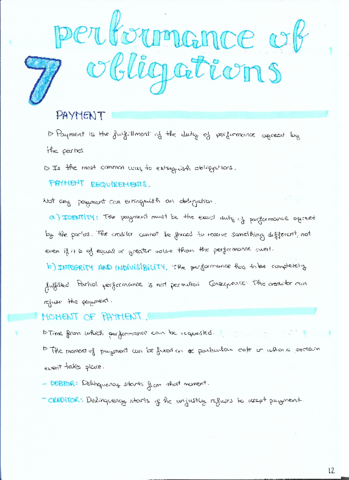 7
performance of
obligations
PAYMENT
Payment is the fulfillment of the duty of performance agreed by
the parties
Is the most common way to extinguish obligations.
PAYMENT REQUIREMENTS.
Not any payment can extinguish an obligation.
a) IDENTITY: The payment must be the exact duty of performance agreed
by the parties. The creditor cannot be forced to receive something different, not
even if it is of equal or greater value than the performance owed.
b) INTEGRITY AND INDIVISIBILITY. The performance has to be completely
fulfilled. Partial performance is not permitted. Consequence: The creditor can
refuse the payment.
MOMENT OF PAYMENT.
Time from which performance can be requested.
The moment of payment can be fixed on a particular date or when a certain
event takes place.
- DEBTOR: Delinquency starts from that moment.
- CREDITOR: Delinquency starts if he unjustly refuses to accept payment
12